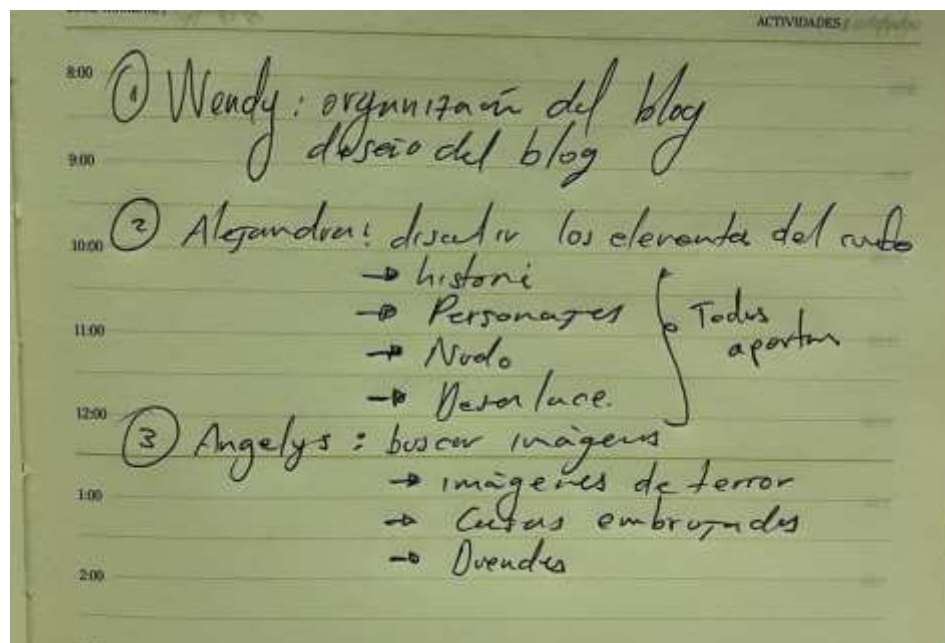 ACTIVIDADES /
8:00
① Wendy: organización del blog
diseño del blog
9:00
② Alejandra: discutir los elementos del cuento
10:00
→ historia
→ Personajes
11:00
Todos
aportan
→ Nudo
→ Desenlace.
12:00
③ Angelys: buscar imágenes
→ imágenes de terror
1:00
→ Casas embrujadas
→ Duendes
2:00